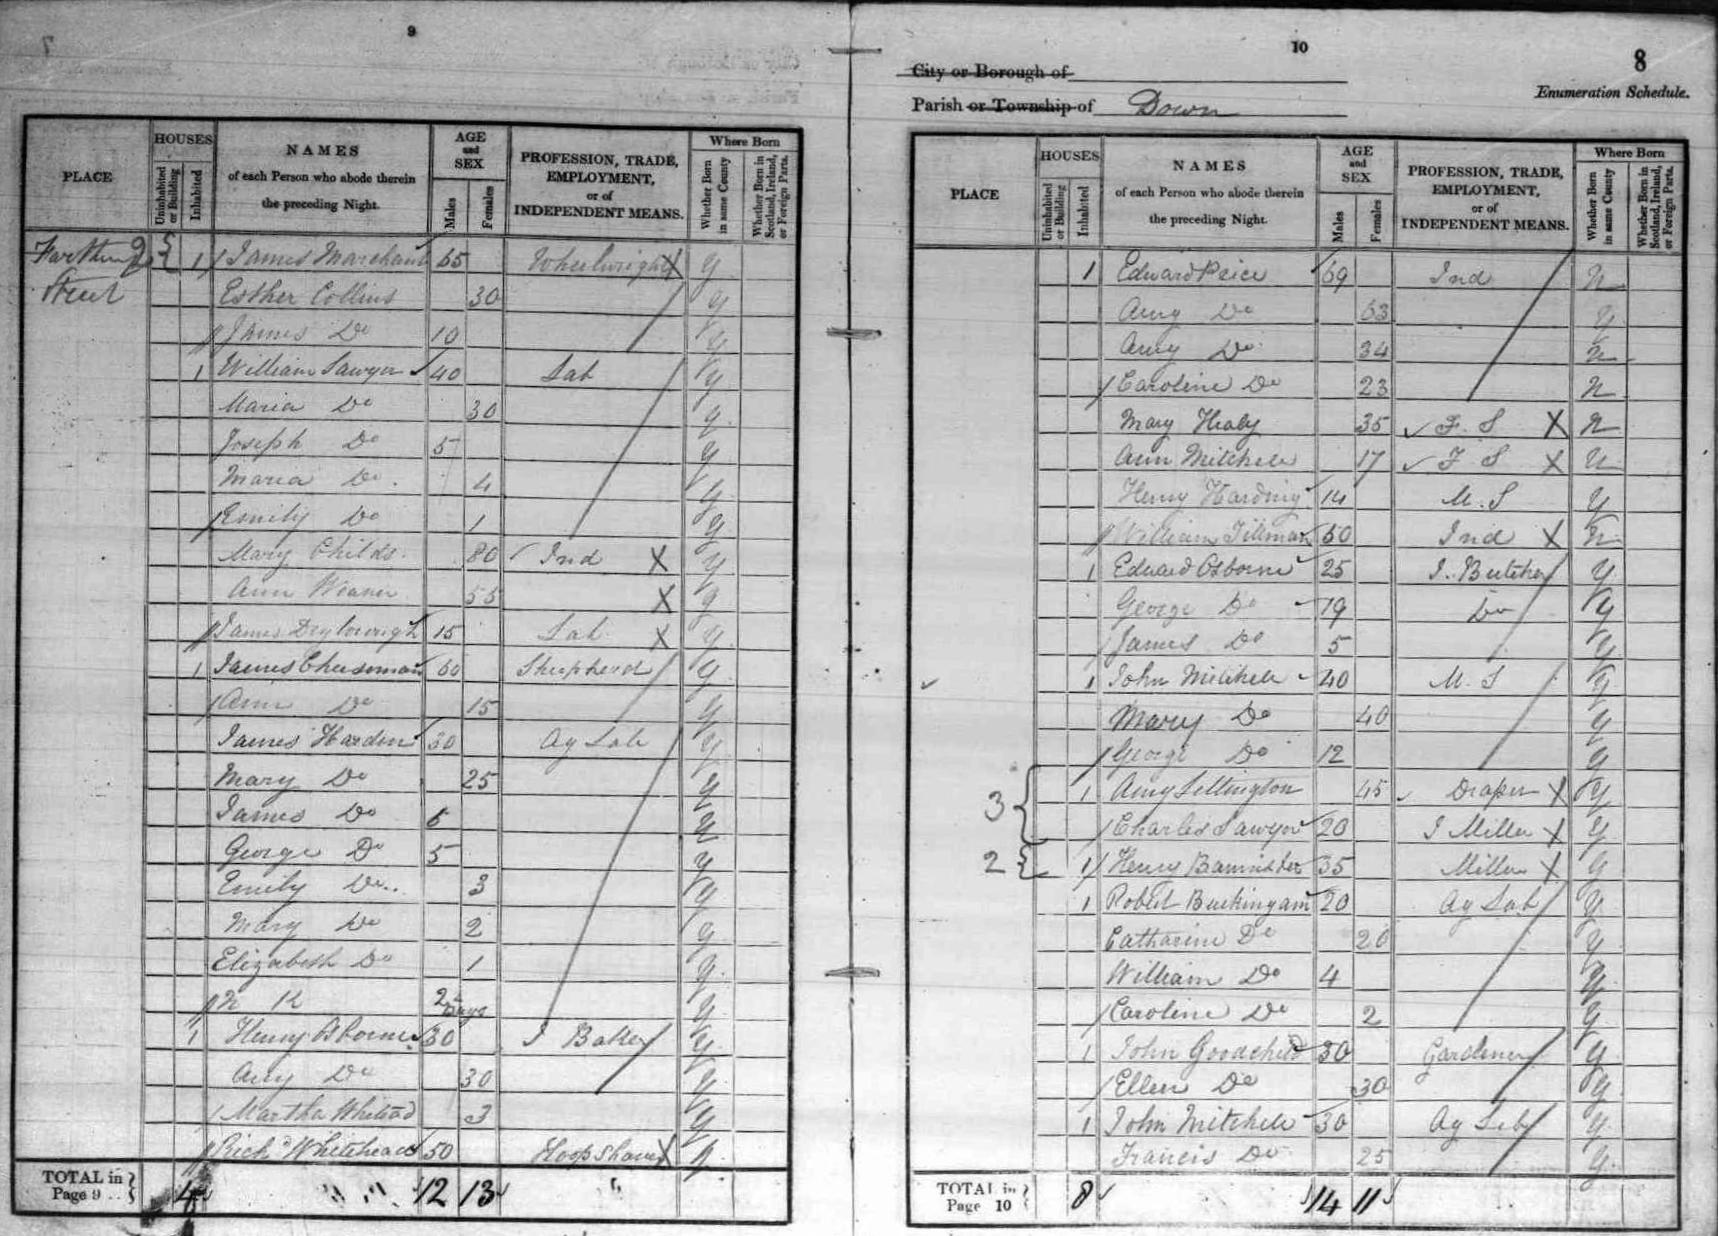 9
HOUSES
NAMES
AGE and SEX
PROFESSION, TRADE,
Where Born
PLACE
Uninhabited or Building
Inhabited
of each Person who abode therein
the preceding Night.
Males
Females
EMPLOYMENT,
or of
INDEPENDENT MEANS.
Whether Born in same County
Whether Born in Scotland, Ireland, or Foreign Parts.
Farthing 1 James Marchant 65 Wheelwright X y
Street Esther Collins 30 y
James Do 10 y
1 William Sawyer 40 Lab y
Maria Do 30 y
Joseph Do 5 y
Maria Do 4 y
Emily Do 1 y
Mary Childs 80 Ind X y
Ann 55 X y
James 15 Lab X y
1 James Cheeseman 60 Shepherd y
Ann Do 15 y
James Harden 30 Ag Lab y
Mary Do 25 y
James Do 6 y
George Do 5 y
Emily Do 3 y
Mary Do 2 y
Elizabeth Do 1 y
N K 2 Days y
1 Henry Osborne 30 J Baker y
Amy Do 30 y
Martha Whitead 3 y
Richd Whitehead 50 Hoopshaver X
TOTAL in Page 9 4 " " 12 13 "
10
8
City or Borough of
Enumeration Schedule.
Parish or Township of Down
HOUSES
NAMES
AGE and SEX
PROFESSION, TRADE,
Where Born
PLACE
Uninhabited or Building
Inhabited
of each Person who abode therein
the preceding Night.
Males
Females
EMPLOYMENT,
or of
INDEPENDENT MEANS.
Whether Born in same County
Whether Born in Scotland, Ireland, or Foreign Parts.
1 Edward Price 69 Ind n
Amy Do 63 y
Amy Do 34 n
Caroline Do 23 n
Mary Healy 35 F. S X n
Ann Mitchele 17 F S X
Henry Harding 14 M. S y
William Tillman 50 Ind X n
1 Edward Osborne 25 J. Butcher y
George Do 19 Do y
James Do 5 y
1 John Mitchele 40 M. S y
Mary Do 40 y
George Do 12 y
3 1 Amy Lellington 45 Draper X y
Charles Sawyer 20 J Miller X y
2 1 Henry Bannister 35 Miller X y
1 Robert Buckingam 20 Ag Lab y
Catharine Do 20 y
William Do 4 y
Caroline Do 2 y
1 John Goodchild 30 Gardener y
Ellen Do 30 y
1 John Mitchele 30 Ag Lab y
Francis Do 25 y
TOTAL in Page 10 8 14 11